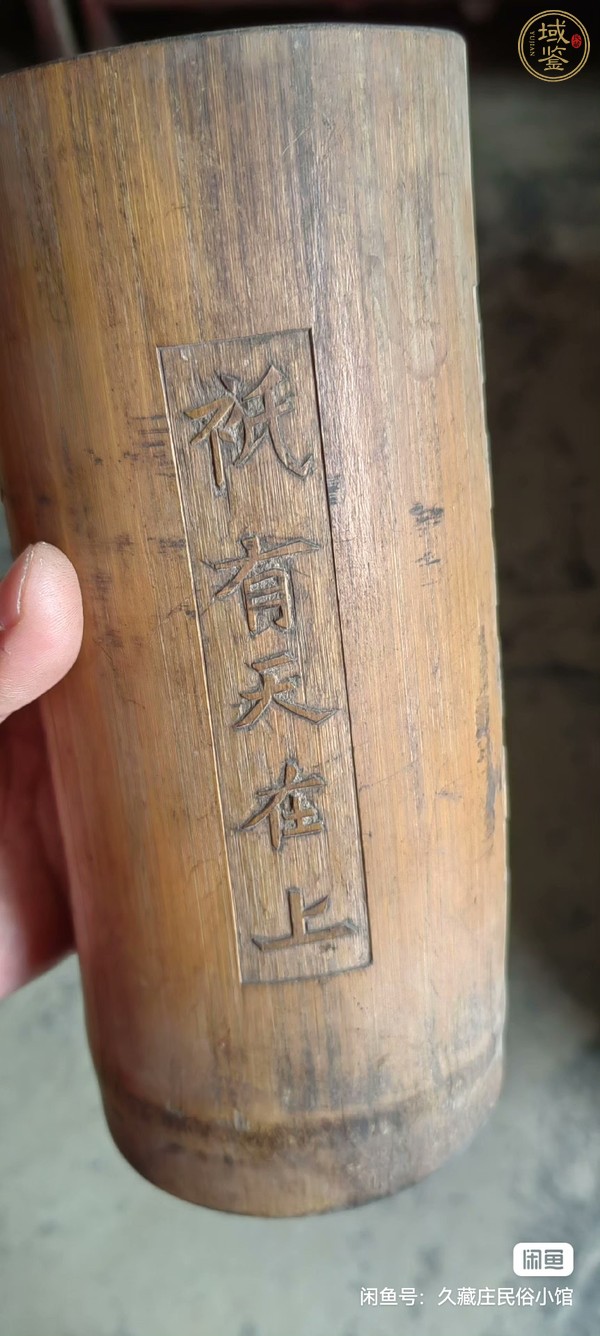 域鉴
YUJIAN
祇有天在上
闲鱼
闲鱼号：久藏庄民俗小馆